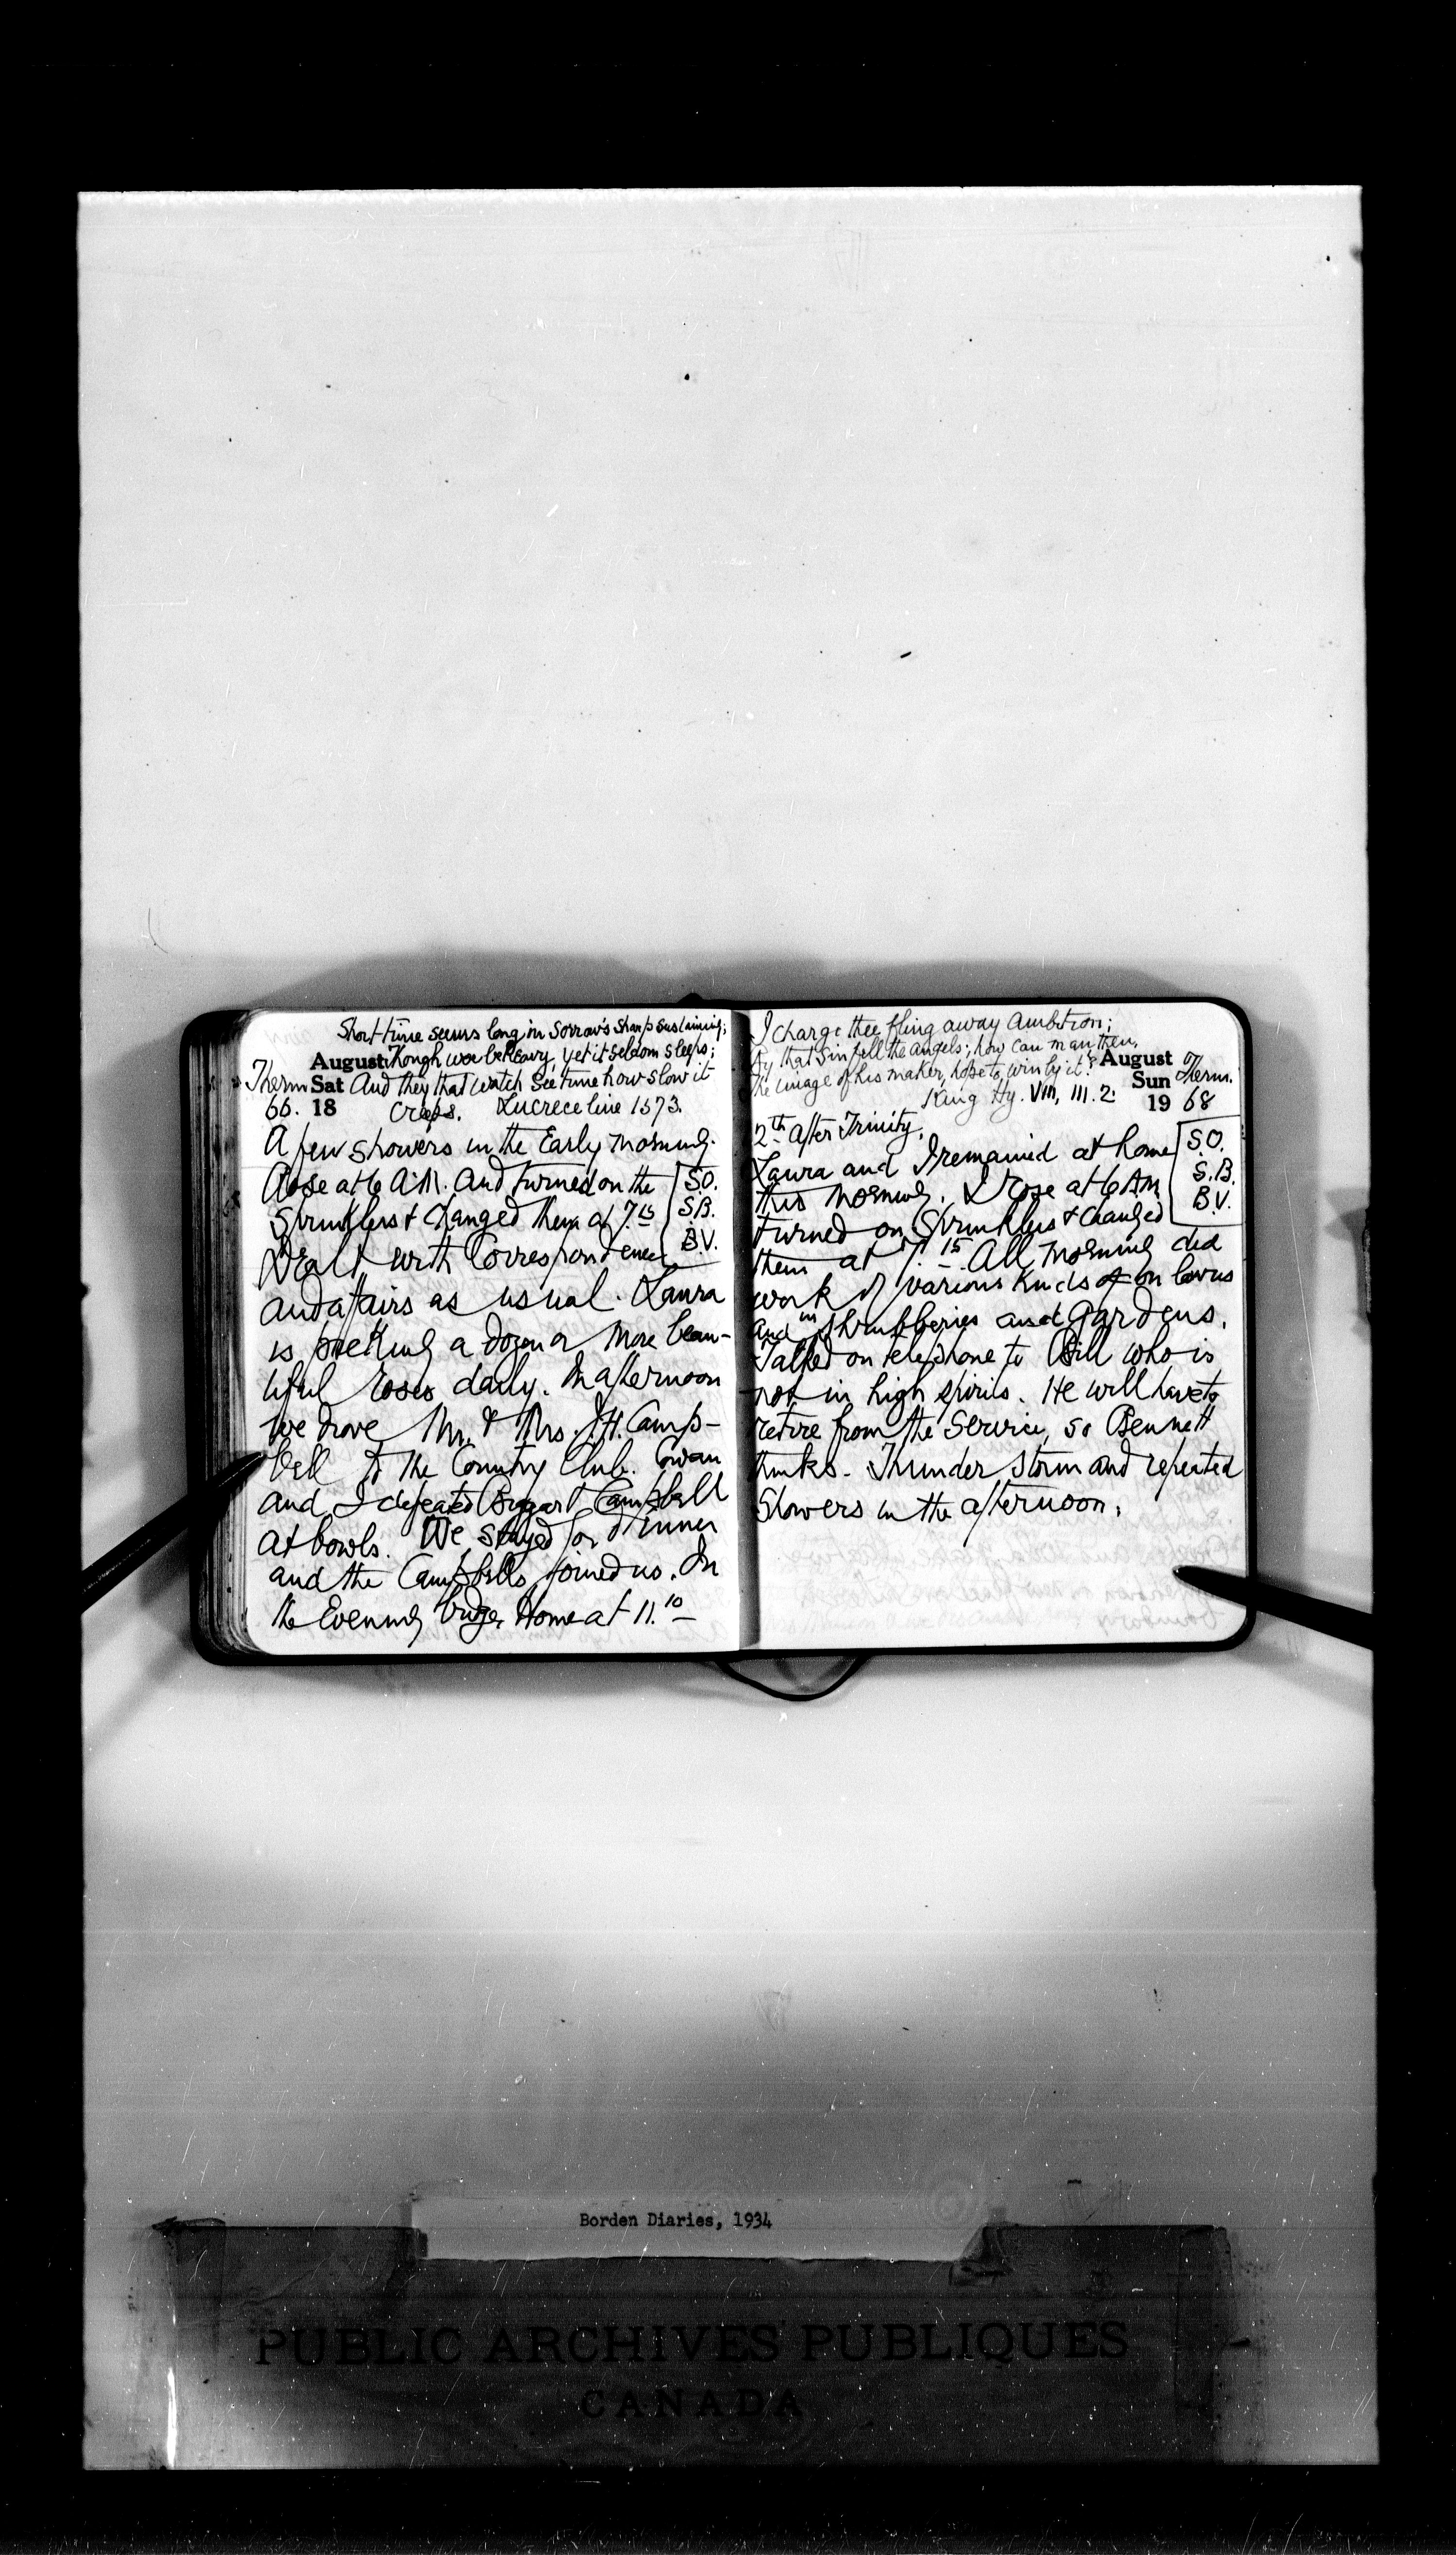 Short time seems long in Sorrow's sharp sustaining;
August Though woe be heavy, yet it seldom sleeps;
Therm Sat And they that watch see time how slow it
66. 18 creeps. Lucrece line 1573.
A few showers in the Early morning.
Rose at 6 A.M. And turned on the
sprinklers & changed them at 7.15
S.O.
S.B.
B.V.
Dealt with Correspondence
and affairs as usual. Laura
is picking a dozen or more beau-
tiful roses daily. In afternoon
we drove Mr. & Mrs. Camp-
bell to the Country Club. Cowan
and I defeated Biggar & Campbell
at bowls. We stayed for dinner
and the Campbells joined us. In
the Evening bridge. Home at 11.10
I charge thee fling away Ambition;
By that sin fell the Angels; how can man then,
The image of his maker, hope to win by it?
King Hy. VIII, III. 2.
August
Sun Therm.
19 68
2th after Trinity.
S.O.
S.B.
B.V.
Laura and I remained at home
this morning. I rose at 6 AM
turned on Sprinklers & changed
them at 7.15 All morning did
work of various kinds on lawns
and in shrubberies and gardens.
Talked on telephone to Bill who is
not in high spirits. He will have to
retire from the Service, so Bennett
thinks. Thunder storm and repeated
showers in the afternoon.
Borden Diaries, 1934
PUBLIC ARCHIVES PUBLIQUES
CANADA